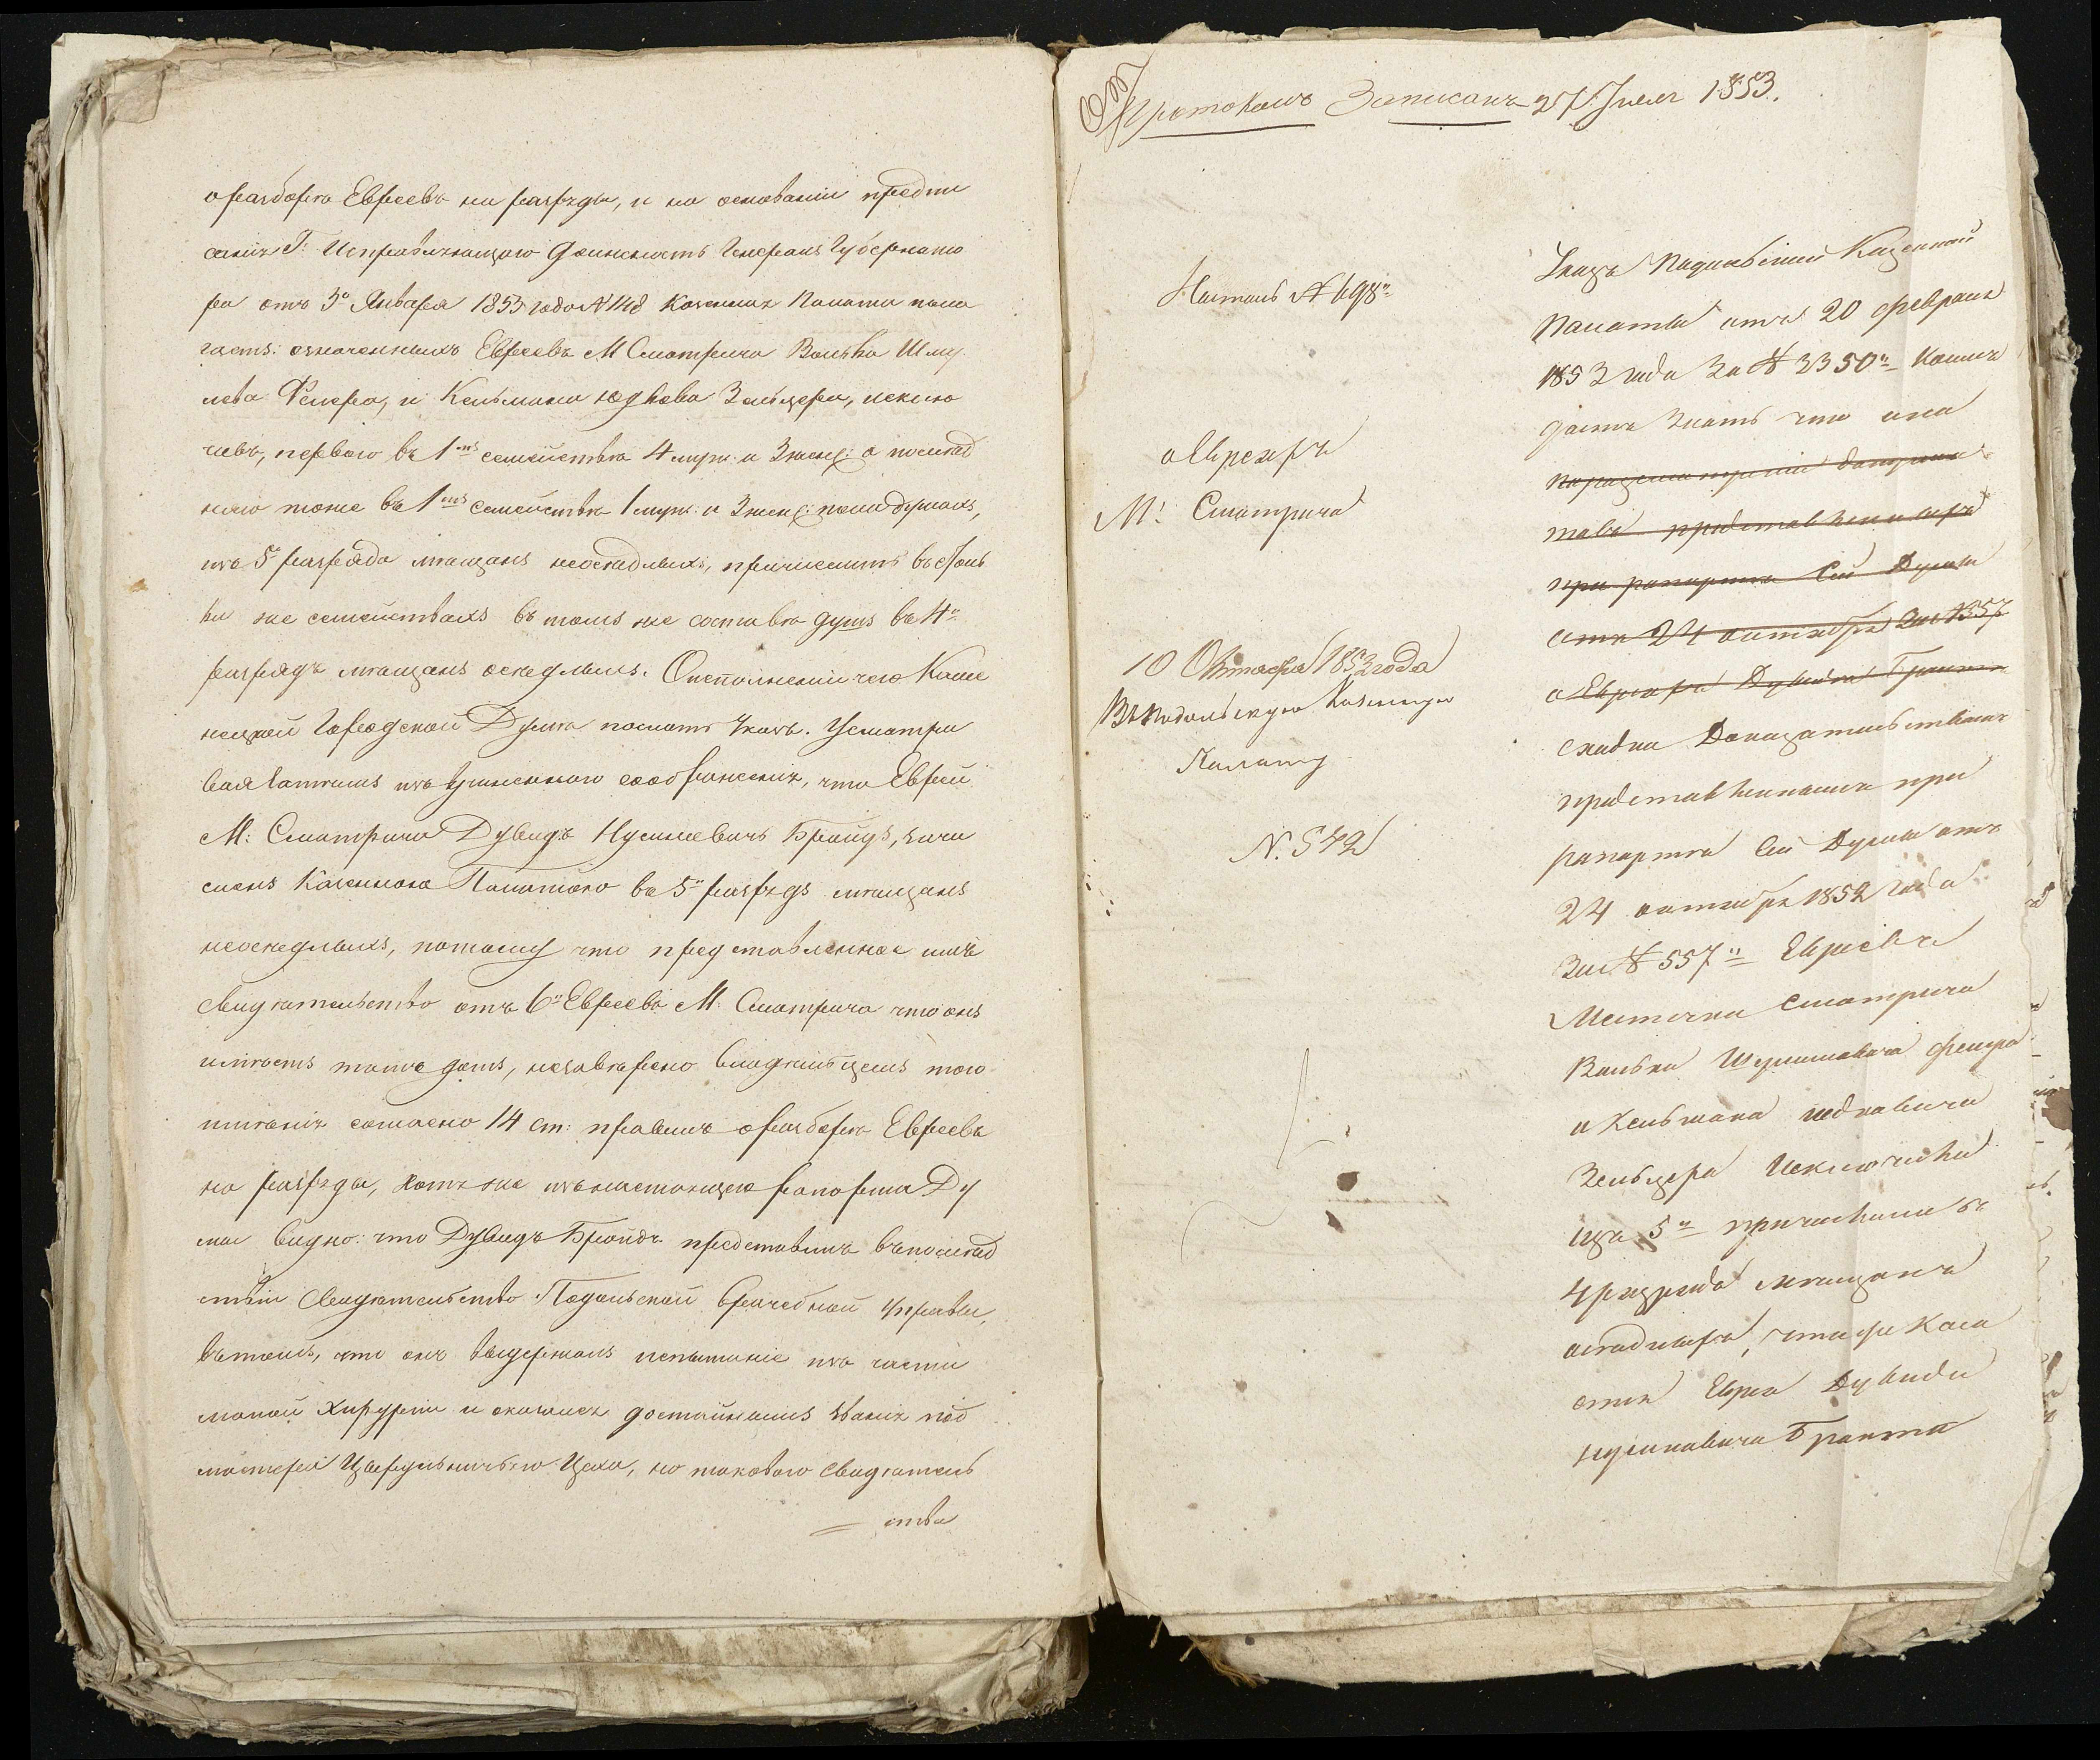 о разборѣ Евреевъ на разряды, и на основаніи предпи
санія Г: Исправляющаго должность Генералъ Губернато
ра отъ 3го Января 1853 года № 148 Казенная Палата пола
гаетъ: означенныхъ Евреевъ М Смотрича Волька Шму
лева Фелера, и Кельмана Юдкова Зельцера, исклю
чивъ, перваго въ 1мъ семействѣ 4 муж: и 3 жен: а послѣд
няго тоже въ 1мъ семействѣ 1 муж: и 3 жен: пола душахъ,
изъ 5го разряда мѣщанъ неосѣдлыхъ, причислить въ
же семействахъ въ томъ же составѣ душъ въ 4й
разрядъ мѣщанъ осѣдлыхъ. О исполненіи чего Каме
нецкой Городской Думѣ послать Указъ. Усматри
вая затѣмъ изъ соображенія, что Еврей
М: Смотрича Дувидъ Нусимевичъ Бройдъ, зачи
сленъ Казенною Палатою въ 5й разрядъ мѣщанъ
неосѣдлыхъ, потому что представленное имъ
свидѣтельство отъ 6и Евреевъ М. Смотрича что онъ
имѣетъ тамъ домъ, незавѣрено владѣльцемъ того
имѣнія согласно 14 ст: правилъ о разборѣ Евреевъ
на разряды, хотя же изъ настоящаго рапорта Ду
мы видно: что Дувидъ Бройдъ представилъ въ послѣд
ствіи свидѣтельство Подольской Врачебной Управы,
въ томъ, что онъ выдержалъ испытаніе изъ части
малой хирургіи и оказался достойнымъ званія под
мастера Цырульничьяго Цеха, но таковаго свидѣтель
= ства
Протоколъ Записанъ 27 Іюля 1853.
Настолъ № 698й
о Евреяхъ
М: Смотрича
10 Октября 1853 года
Въ Подольскую Казенную
Палату
N. 542
Указъ Подольской Казенной
Палаты отъ 20 февраля
1853 года за № 2350м коимъ
даетъ знать что она
по разсмотреніи
представленныхъ
при рапортѣ сей Думы
отъ 24 октября за № 557
о Евреяхъ Дувидѣ
доказательствъ
представленныхъ при
рапортѣ сей Думы отъ
24 октября 1852 года
за № 557м Евреевъ
Местечка Смотрича
Волька Шмулиовича Фелера
и Кельмана Юдковича
Зельцера исключивъ
изъ 5го причислила въ
4 разрядъ мѣщанъ
осѣдлыхъ, что же каса
ется Еврея Дувида
Нусиновича